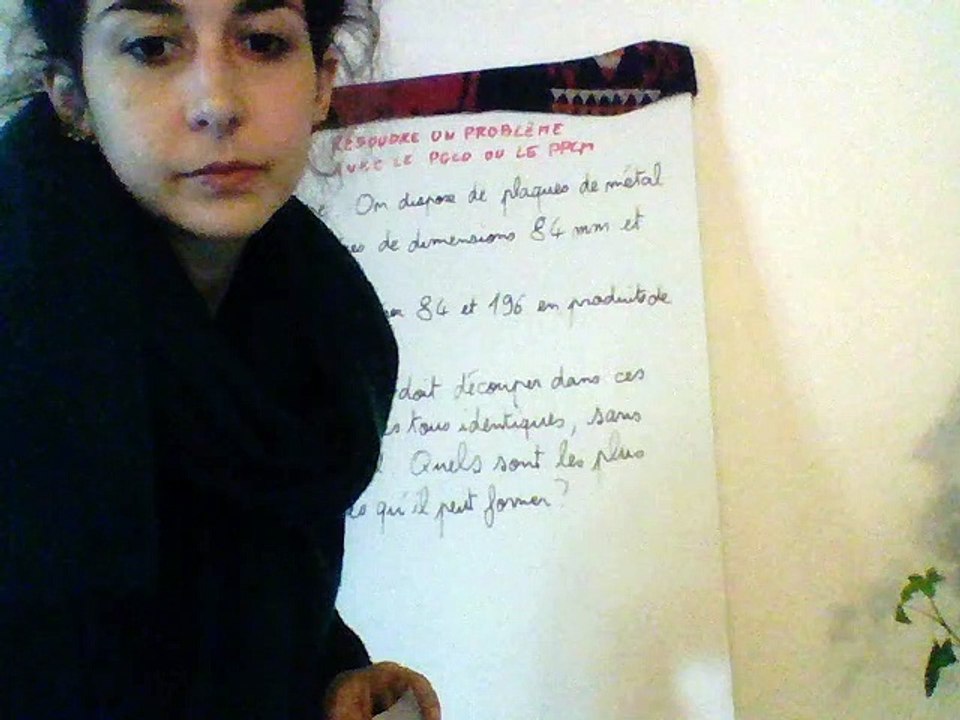 RÉSOUDRE UN PROBLÈME
AVEC LE PGCD OU LE PPCM
On dispose de plaques de métal
de dimensions 84 mm et
84 et 196 en produits de
doit découper dans ces
tous identiques, sans
Quels sont les plus
qu'il peut former?